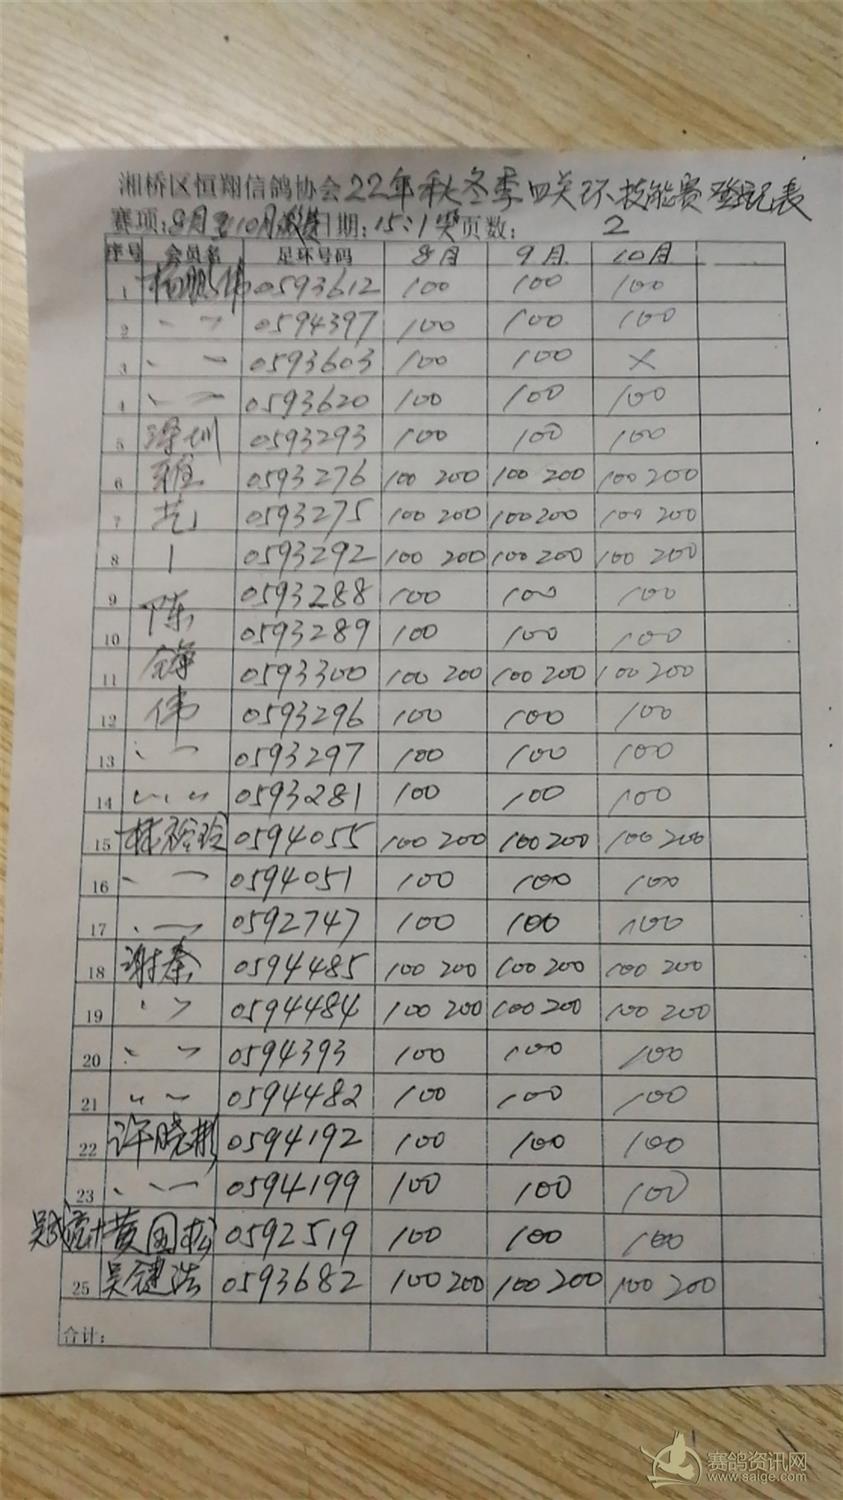 湘桥区恒翔信鸽协会22年秋冬季四关环技能赛登记表
赛项:8月至10月缴费日期:15:1奖页数: 2
序号 会员名 足环号码 8月 9月 10月
1 0593612 100 100 100
2 〃 0594397 100 100 100
3 〃 0593603 100 100 ×
4 〃 0593620 100 100 100
5 深圳 0593293 100 100 100
6 雅 0593276 100 200 100 200 100 200
7 艺 0593275 100 200 100 200 100 200
8 0593292 100 200 100 200 100 200
9 0593288 100 100 100
10 陈 0593289 100 100 100
11 锋 0593300 100 200 100 200 100 200
12 伟 0593296 100 100 100
13 〃 0593297 100 100 100
14 〃 0593281 100 100 100
15 林裕玲 0594055 100 200 100 200 100 200
16 〃 0594051 100 100 100
17 〃 0592747 100 100 100
18 谢秦 0594485 100 200 100 200 100 200
19 〃 0594484 100 200 100 200 100 200
20 〃 0594393 100 100 100
21 〃 0594482 100 100 100
22 许晓彬 0594192 100 100 100
23 〃 0594199 100 100 100
黄国松 0592519 100 100 100
25 吴健浩 0593682 100 200 100 200 100 200
合计:
赛鸽资讯网
www.saige.com